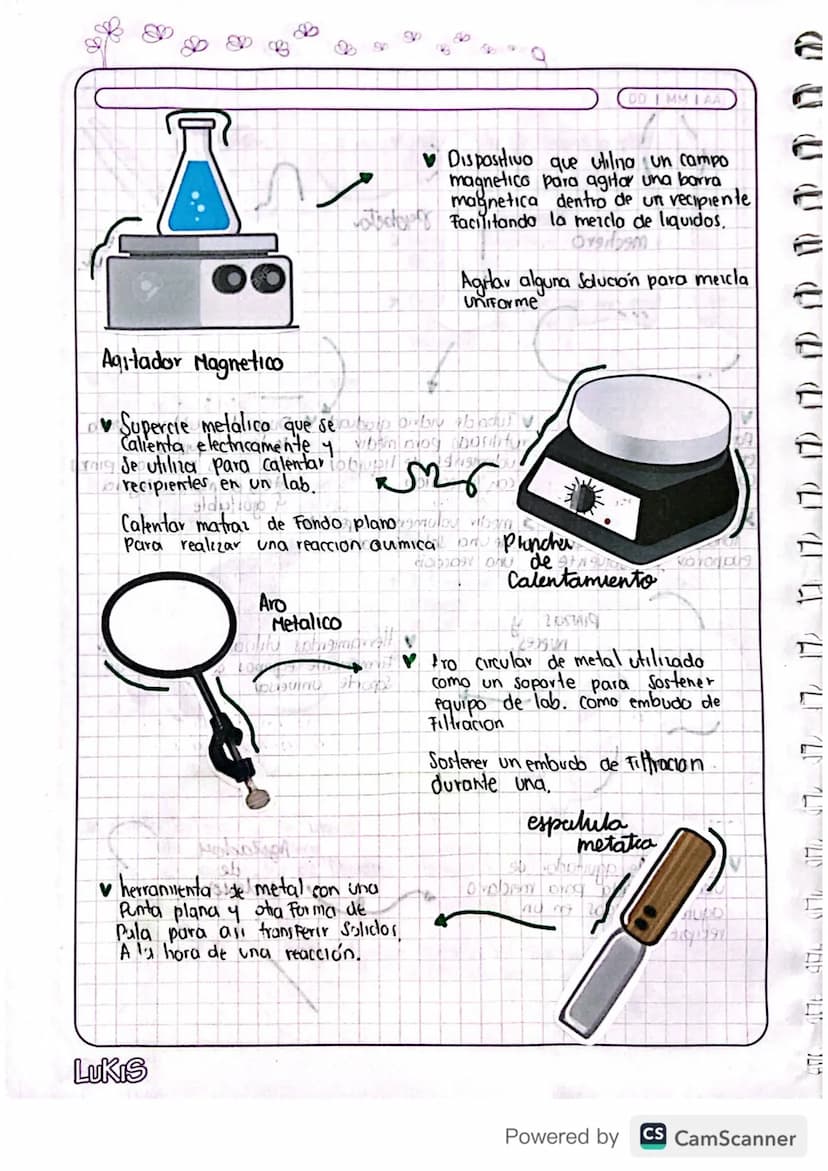 DD | MM | AA
♥ Dispositivo que utiliza un campo
magnetico para agitar una barra
magnetica dentro de un recipiente
Facilitando la mezcla de liquidos.
Agitar alguna solución para mezcla
uniforme
Agitador Magnetico
♥ Supercie metálica que se
Calienta electricamente y
Se utiliza para calentar
recipientes en un lab.
Calentar matraz de Fondo plano
Para realizar una reaccion Quimica
Plancha
de
Calentamiento
Aro
Metalico
♥ Aro circular de metal utilizado
como un soporte para sostener
equipo de lab. como embudo de
Filtracion
Sostener un embudo de Filtracion
durante una.
espatula
metalica
♥ herramienta de metal con una
Punta plana y otra Forma de
Pala para asi transferir Solidos.
A la hora de una reacción.
LuKiS
Powered by CS CamScanner